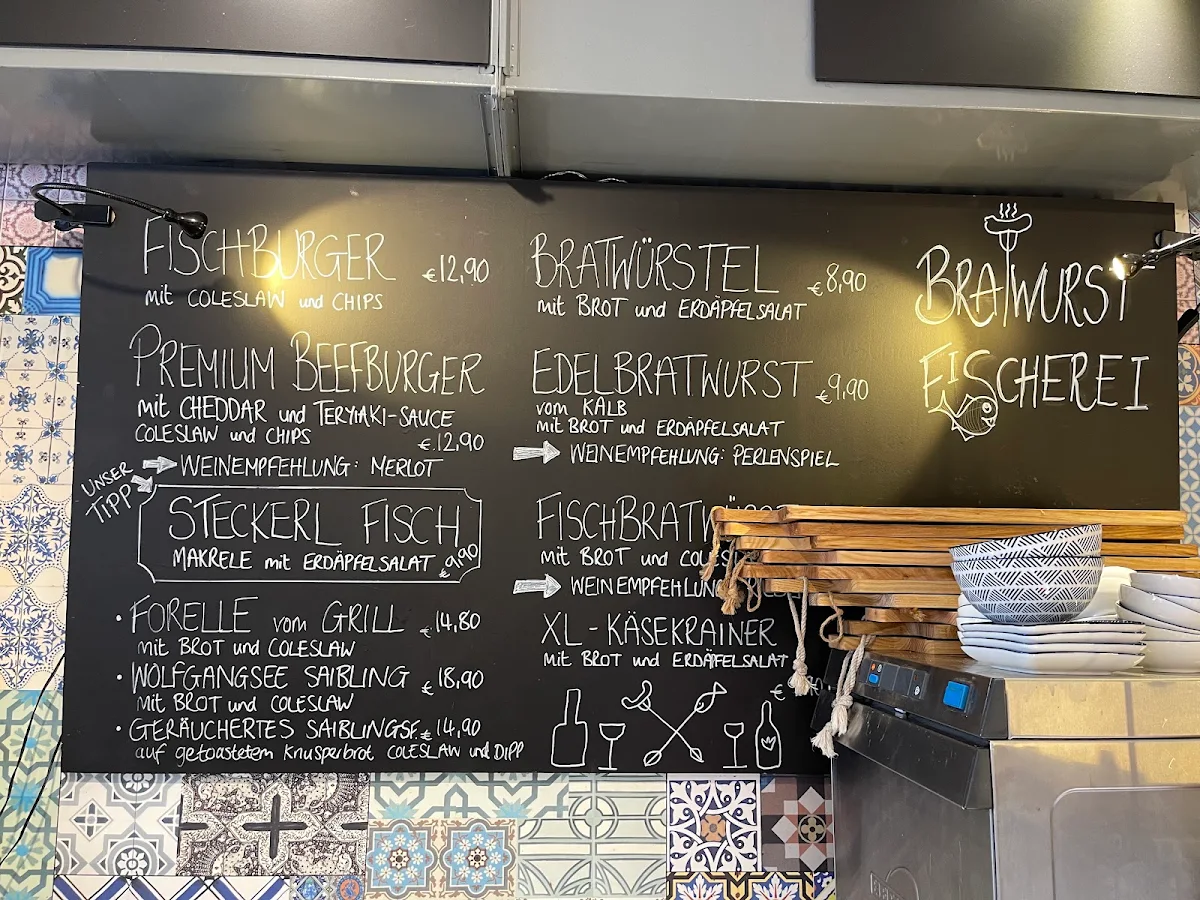 FISCHBURGER €12,90
mit COLESLAW und CHIPS
PREMIUM BEEFBURGER
mit CHEDDAR und TERYIAKI-SAUCE
COLESLAW und CHIPS
€12,90
WEINEMPFEHLUNG: MERLOT
UNSER
TIPP
STECKERL FISCH
MAKRELE mit ERDÄPFELSALAT €9,90
• FORELLE vom GRILL €14,80
mit BROT und COLESLAW
• WOLFGANGSEE SAIBLING €18,90
mit BROT und COLESLAW
• GERÄUCHERTES SAIBLINGSF. €14,90
auf getoastetem Knusperbrot COLESLAW und DIPP
BRATWÜRSTEL €8,90
mit BROT und ERDÄPFELSALAT
EDELBRATWURST €9,90
vom KALB
mit BROT und ERDÄPFELSALAT
WEINEMPFEHLUNG: PERLENSPIEL
mit BROT und
WEINEMPFEHLUNG
XL-KÄSEKRAINER
mit BROT und ERDÄPFELSALAT
€
BRATWURST
FISCHEREI